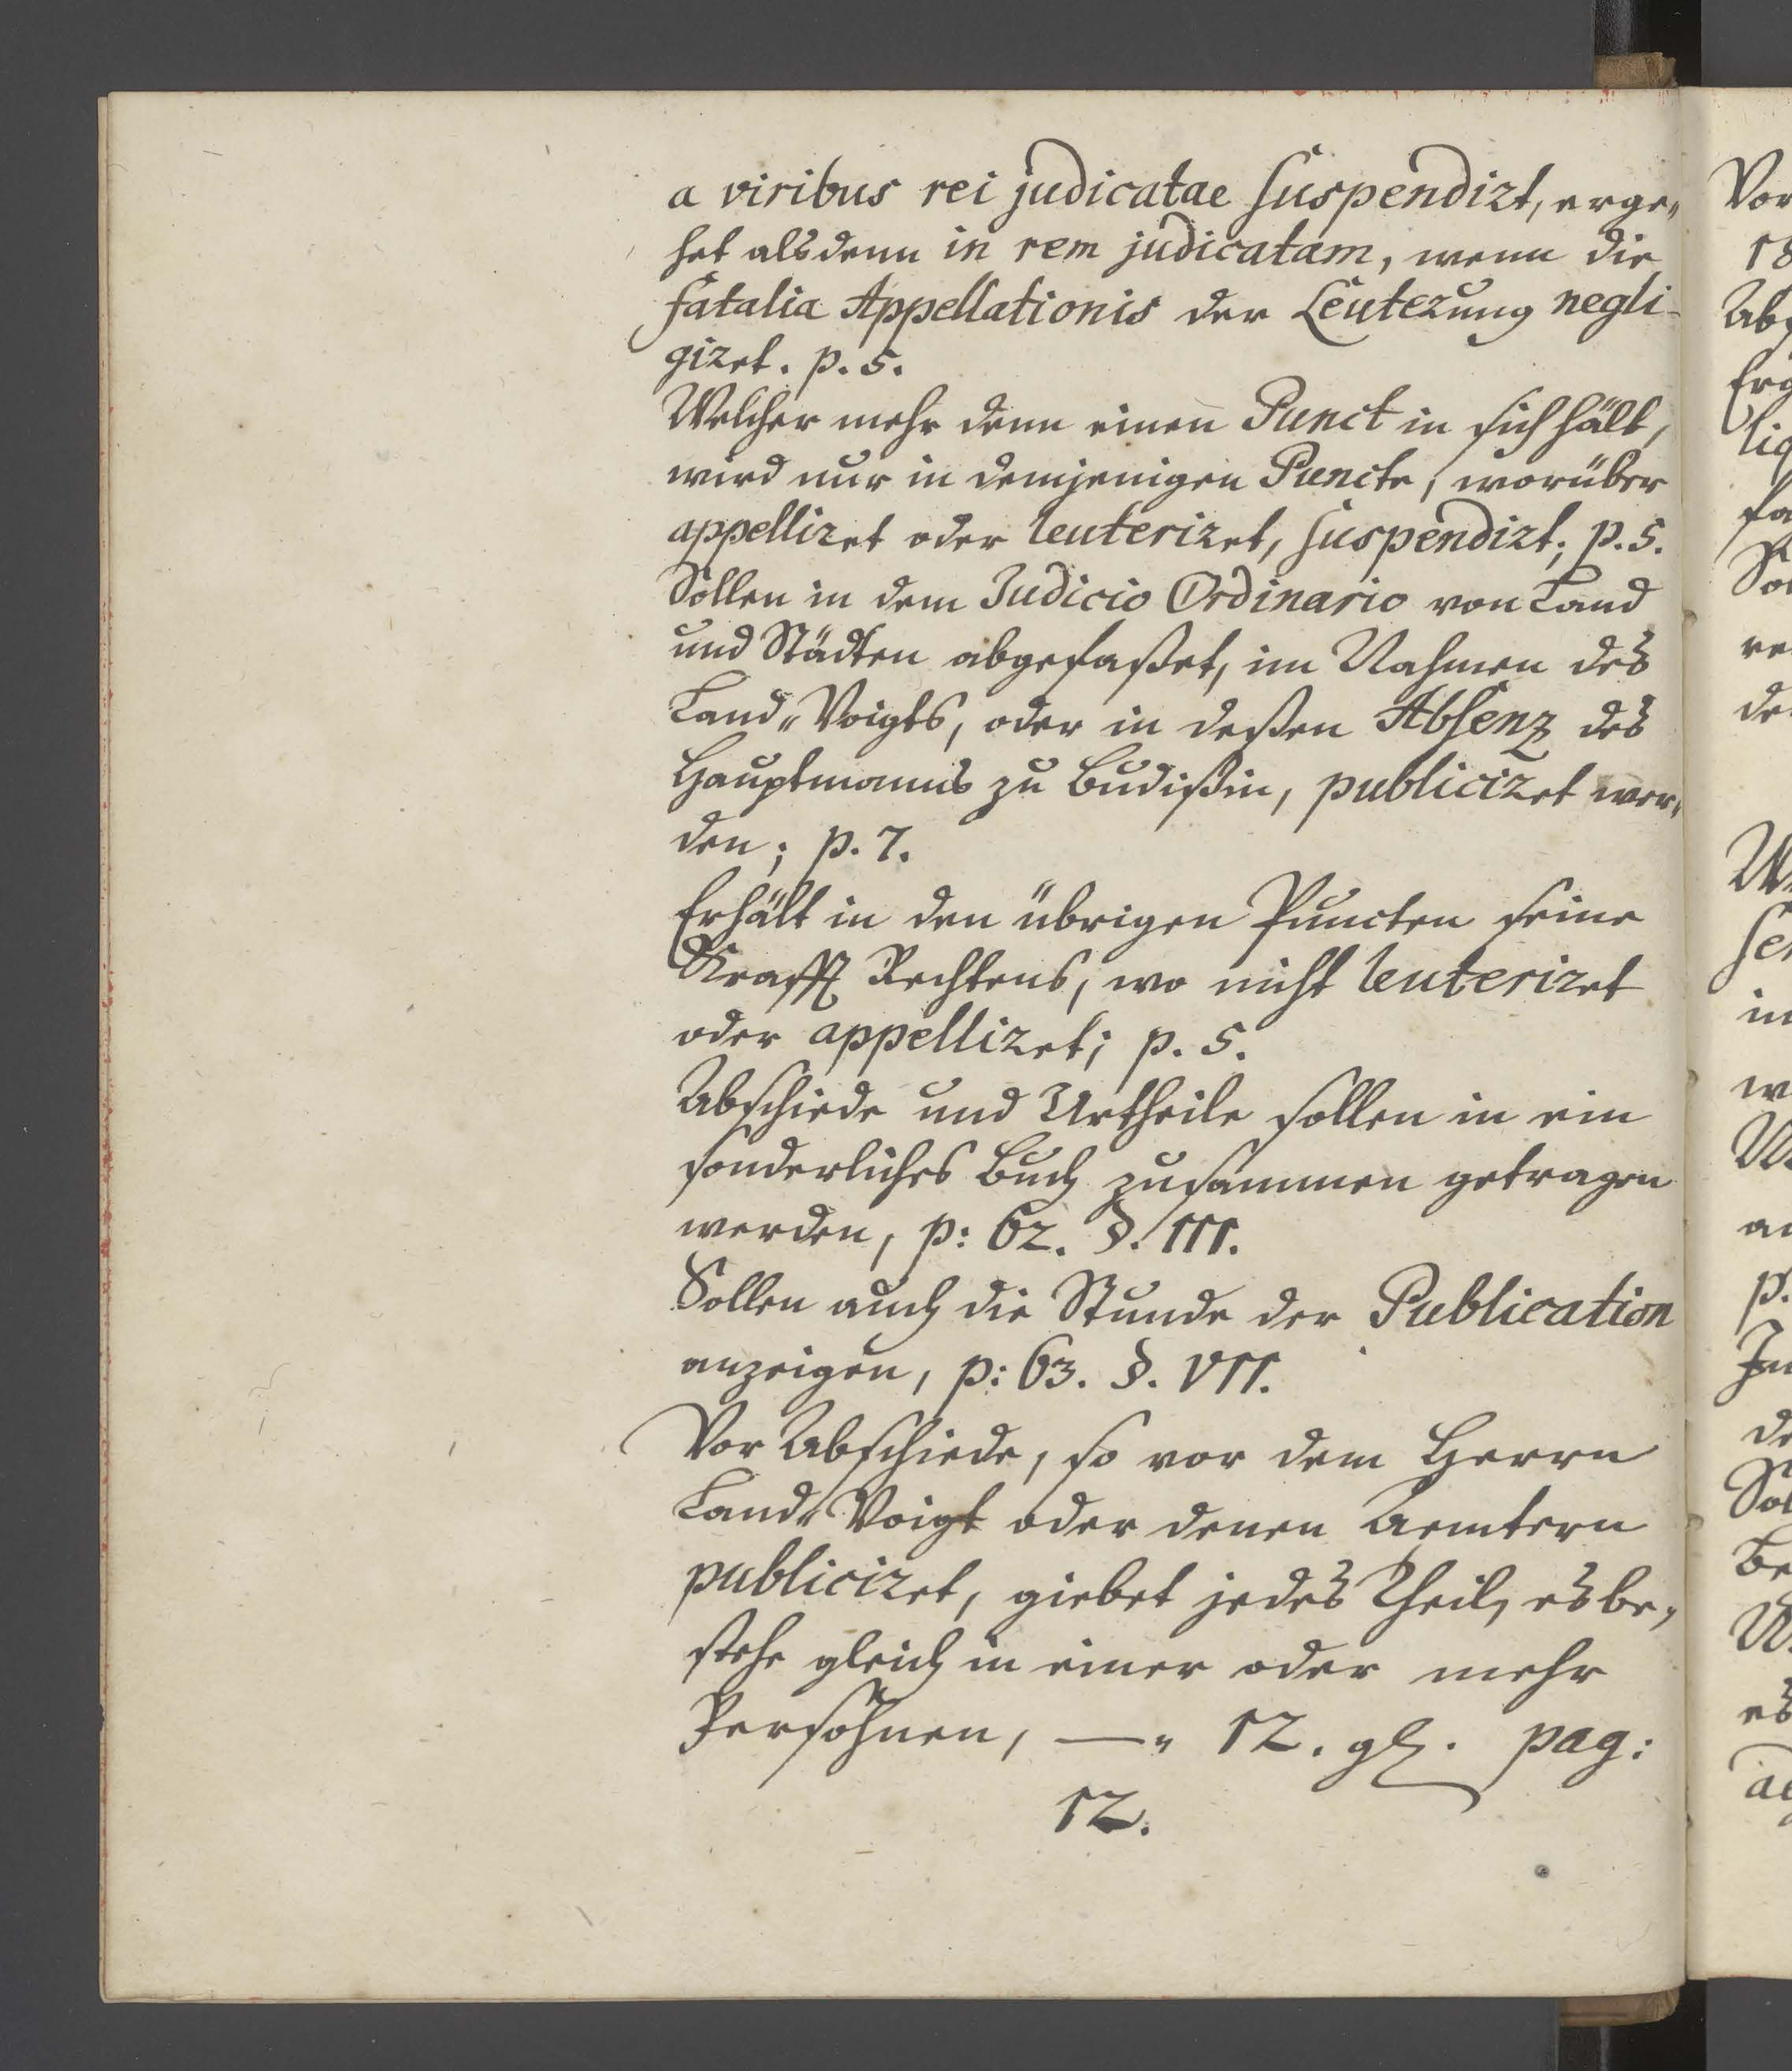 a viribus rei judicatae suspendirt, erge„
het alsdenn in rem judicatam, wenn die
fatalia Appellationis der Leuterung negli-
giret. p. 5.
Welcher mehr denn einen Punct in sich hält,
wird nur in demjenigen Puncte, worüber
appelliret oder leuteriret, suspendirt; p. 5.
Sollen in dem Judicio Ordinario von Land
und Städten abgefaßet, im Nahmen des
Land„Voigts, oder in deßen Absenz des
Hauptmanns zu Budißin, publiciret wer„
den; p. 7.
Erhält in den übrigen Puncten seine
Krafft Rechtens, wo nicht leuteriret
oder appelliret; p. 5.
Abschiede und Urtheile sollen in ein
sonderliches Buch zusammen getragen
werden, p: 62. §. III.
Sollen auch die Stunde der Publication
anzeigen, p: 63. §. VII.
Vor Abschiede, so vor dem Herrn
Land„Voigt oder denen Aemtern
publiciret, giebet jedes Theil, es be„
stehe gleich in einer oder mehr
Persohnen, —„ 12. gl. pag:
12.